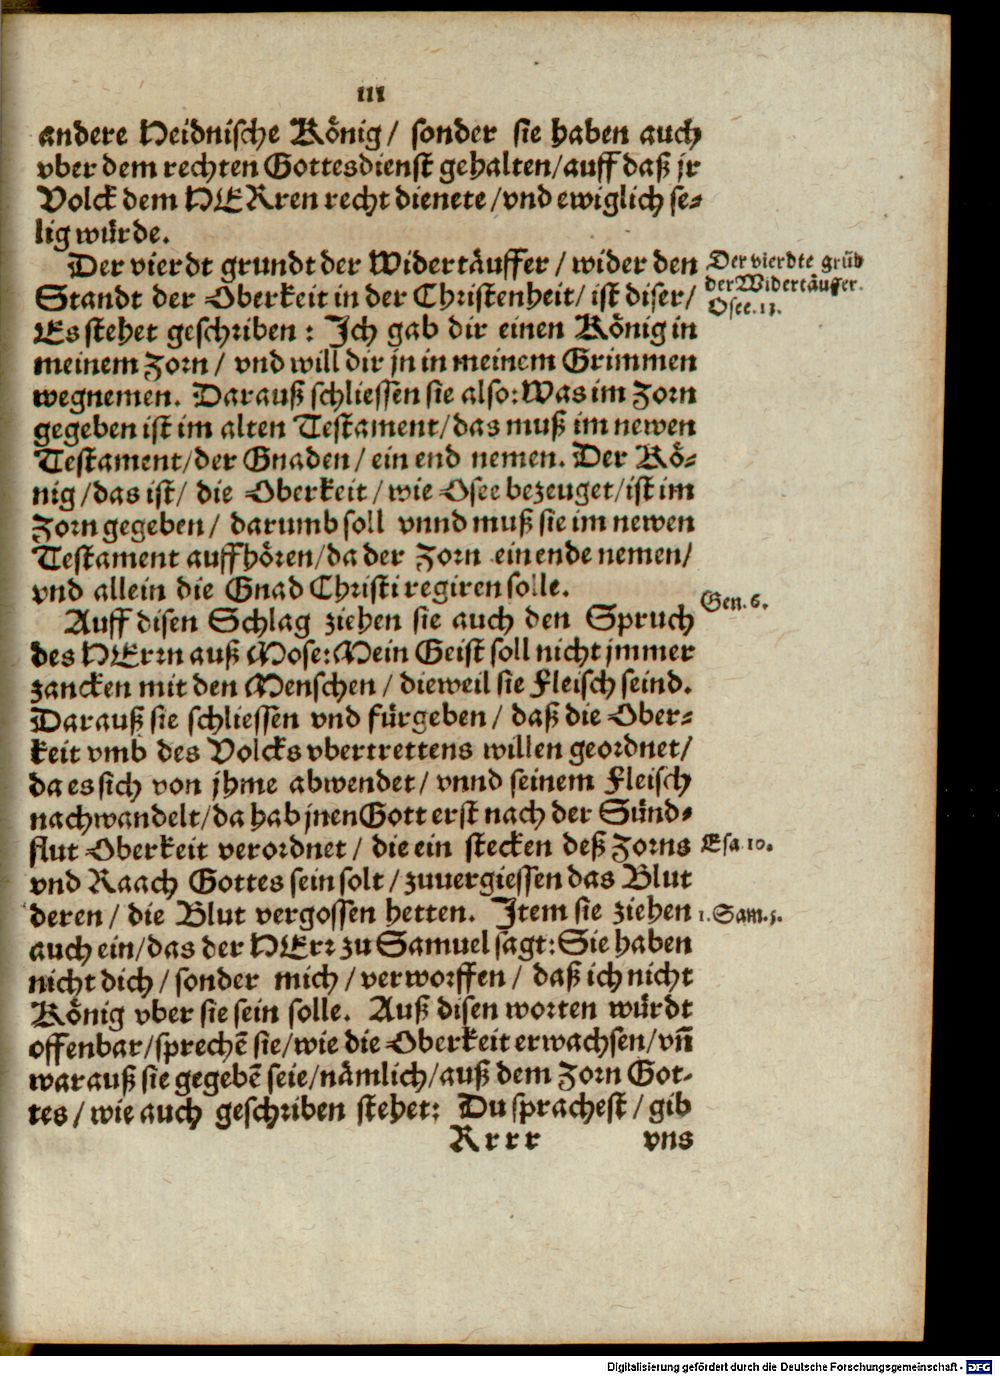 III
andere Heidnische König/ sonder sie haben auch
vber dem rechten Gottesdienst gehalten/auff daß jr
Volck dem HERren recht dienete/vnd ewiglich se-
lig würde.
Der vierdt grundt der Widertäuffer/wider den
Der vierdte grūd
der Widertäuffer.
Osee. 13.
Standt der Oberkeit in der Christenheit/ist diser/
Es stehet geschriben: Ich gab dir einen König in
meinem Zorn/ vnd will dir jn in meinem Grimmen
wegnemen. Darauß schliessen sie also: Was im Zorn
gegeben ist im alten Testament/das muß im newen
Testament/der Gnaden/ein end nemen. Der Kö-
nig/das ist/ die Oberkeit/wie Osee bezeuget/ist im
Zorn gegeben/ darumb soll vnnd muß sie im newen
Testament auffhören/da der Zorn ein ende nemen/
vnd allein die Gnad Christi regiren solle.
Auff disen Schlag ziehen sie auch den Spruch
Gen. 6.
des HErrn auß Mose: Mein Geist soll nicht jmmer
zancken mit den Menschen/dieweil sie Fleisch seind.
Darauß sie schliessen vnd fürgeben/ daß die Ober-
keit vmb des Volcks vbertrettens willen geordnet/
da es sich von jhme abwendet/ vnnd seinem Fleisch
nachwandelt/da hab jnen Gott erst nach der Sünd-
flut Oberkeit verordnet/ die ein stecken deß Zorns
Esa 10.
vnd Raach Gottes sein solt/zuuergiessen das Blut
deren/ die Blut vergossen hetten. Item sie ziehen
1. Sam. 5.
auch ein/das der HErr zu Samuel sagt: Sie haben
nicht dich/sonder mich/verworffen/ daß ich nicht
König vber sie sein solle. Auß disen worten würdt
offenbar/sprechē sie/wie die Oberkeit erwachsen/vn̄
warauß sie gegebē seie/nämlich/auß dem Zorn Got-
tes/wie auch geschriben stehet: Du sprachest/gib
Rrrr vns
Digitalisierung gefördert durch die Deutsche Forschungsgemeinschaft - DFG